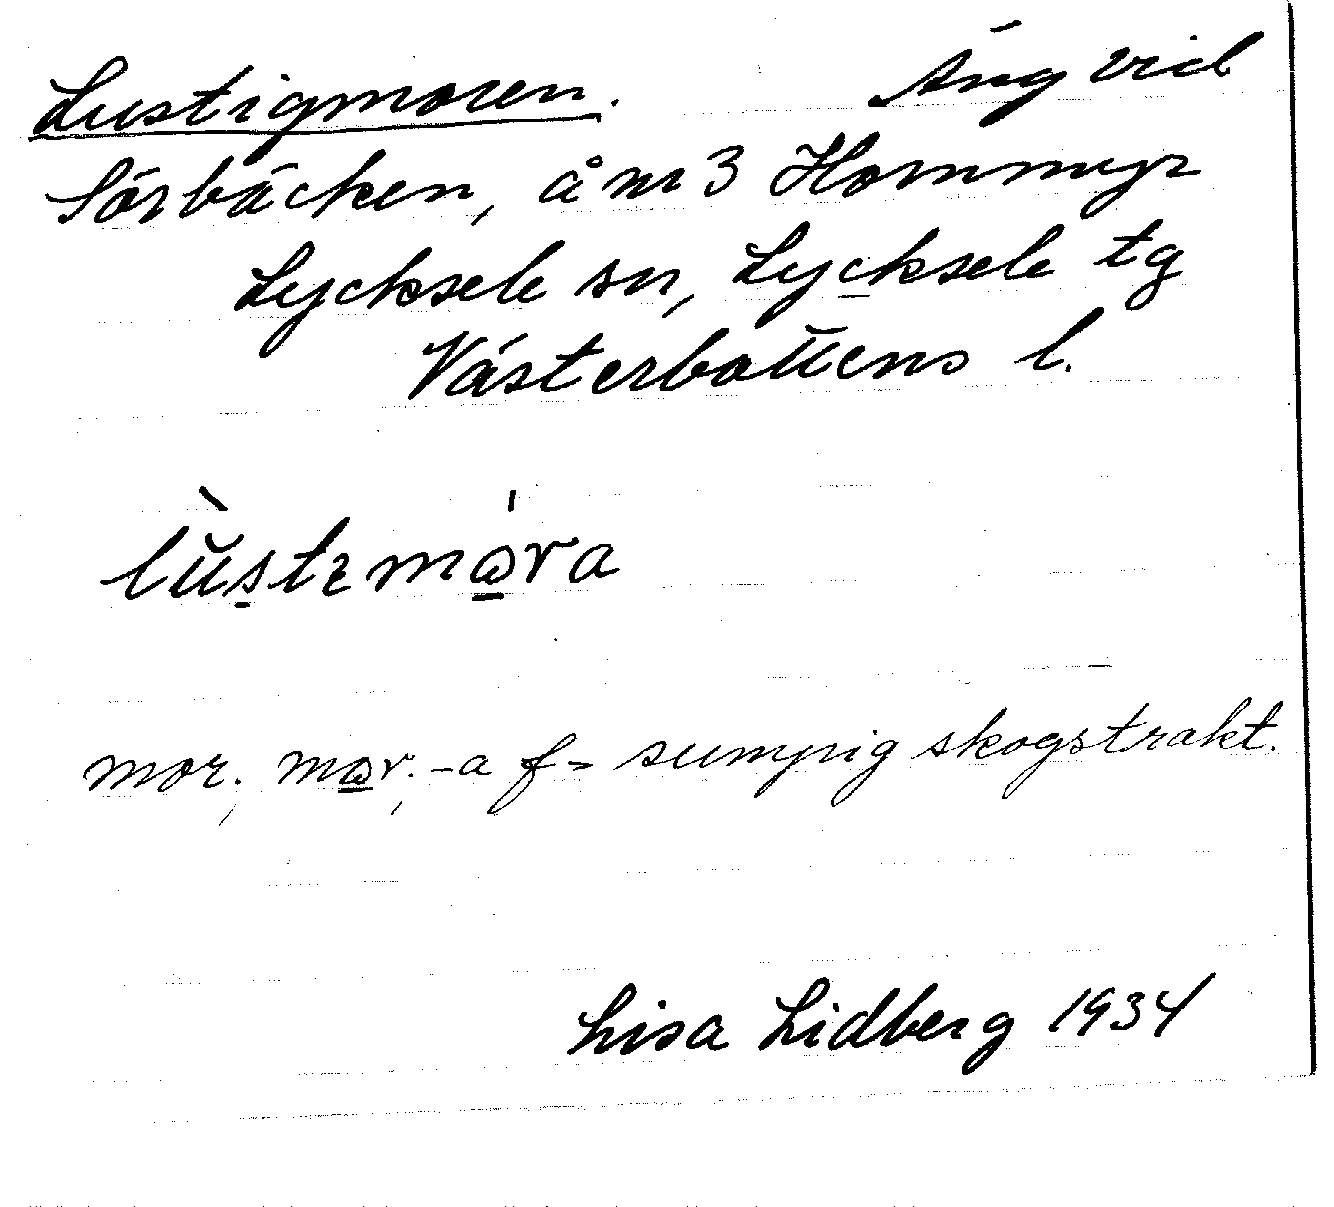 Lustigmoren. Äng vid
Sörbäcken, å nr 3 Hornmyr
Lycksele sn, Lycksele tg
Västerbottens l.
mor; -a f = sumpig skogstrakt.
Lisa Lidberg 1934